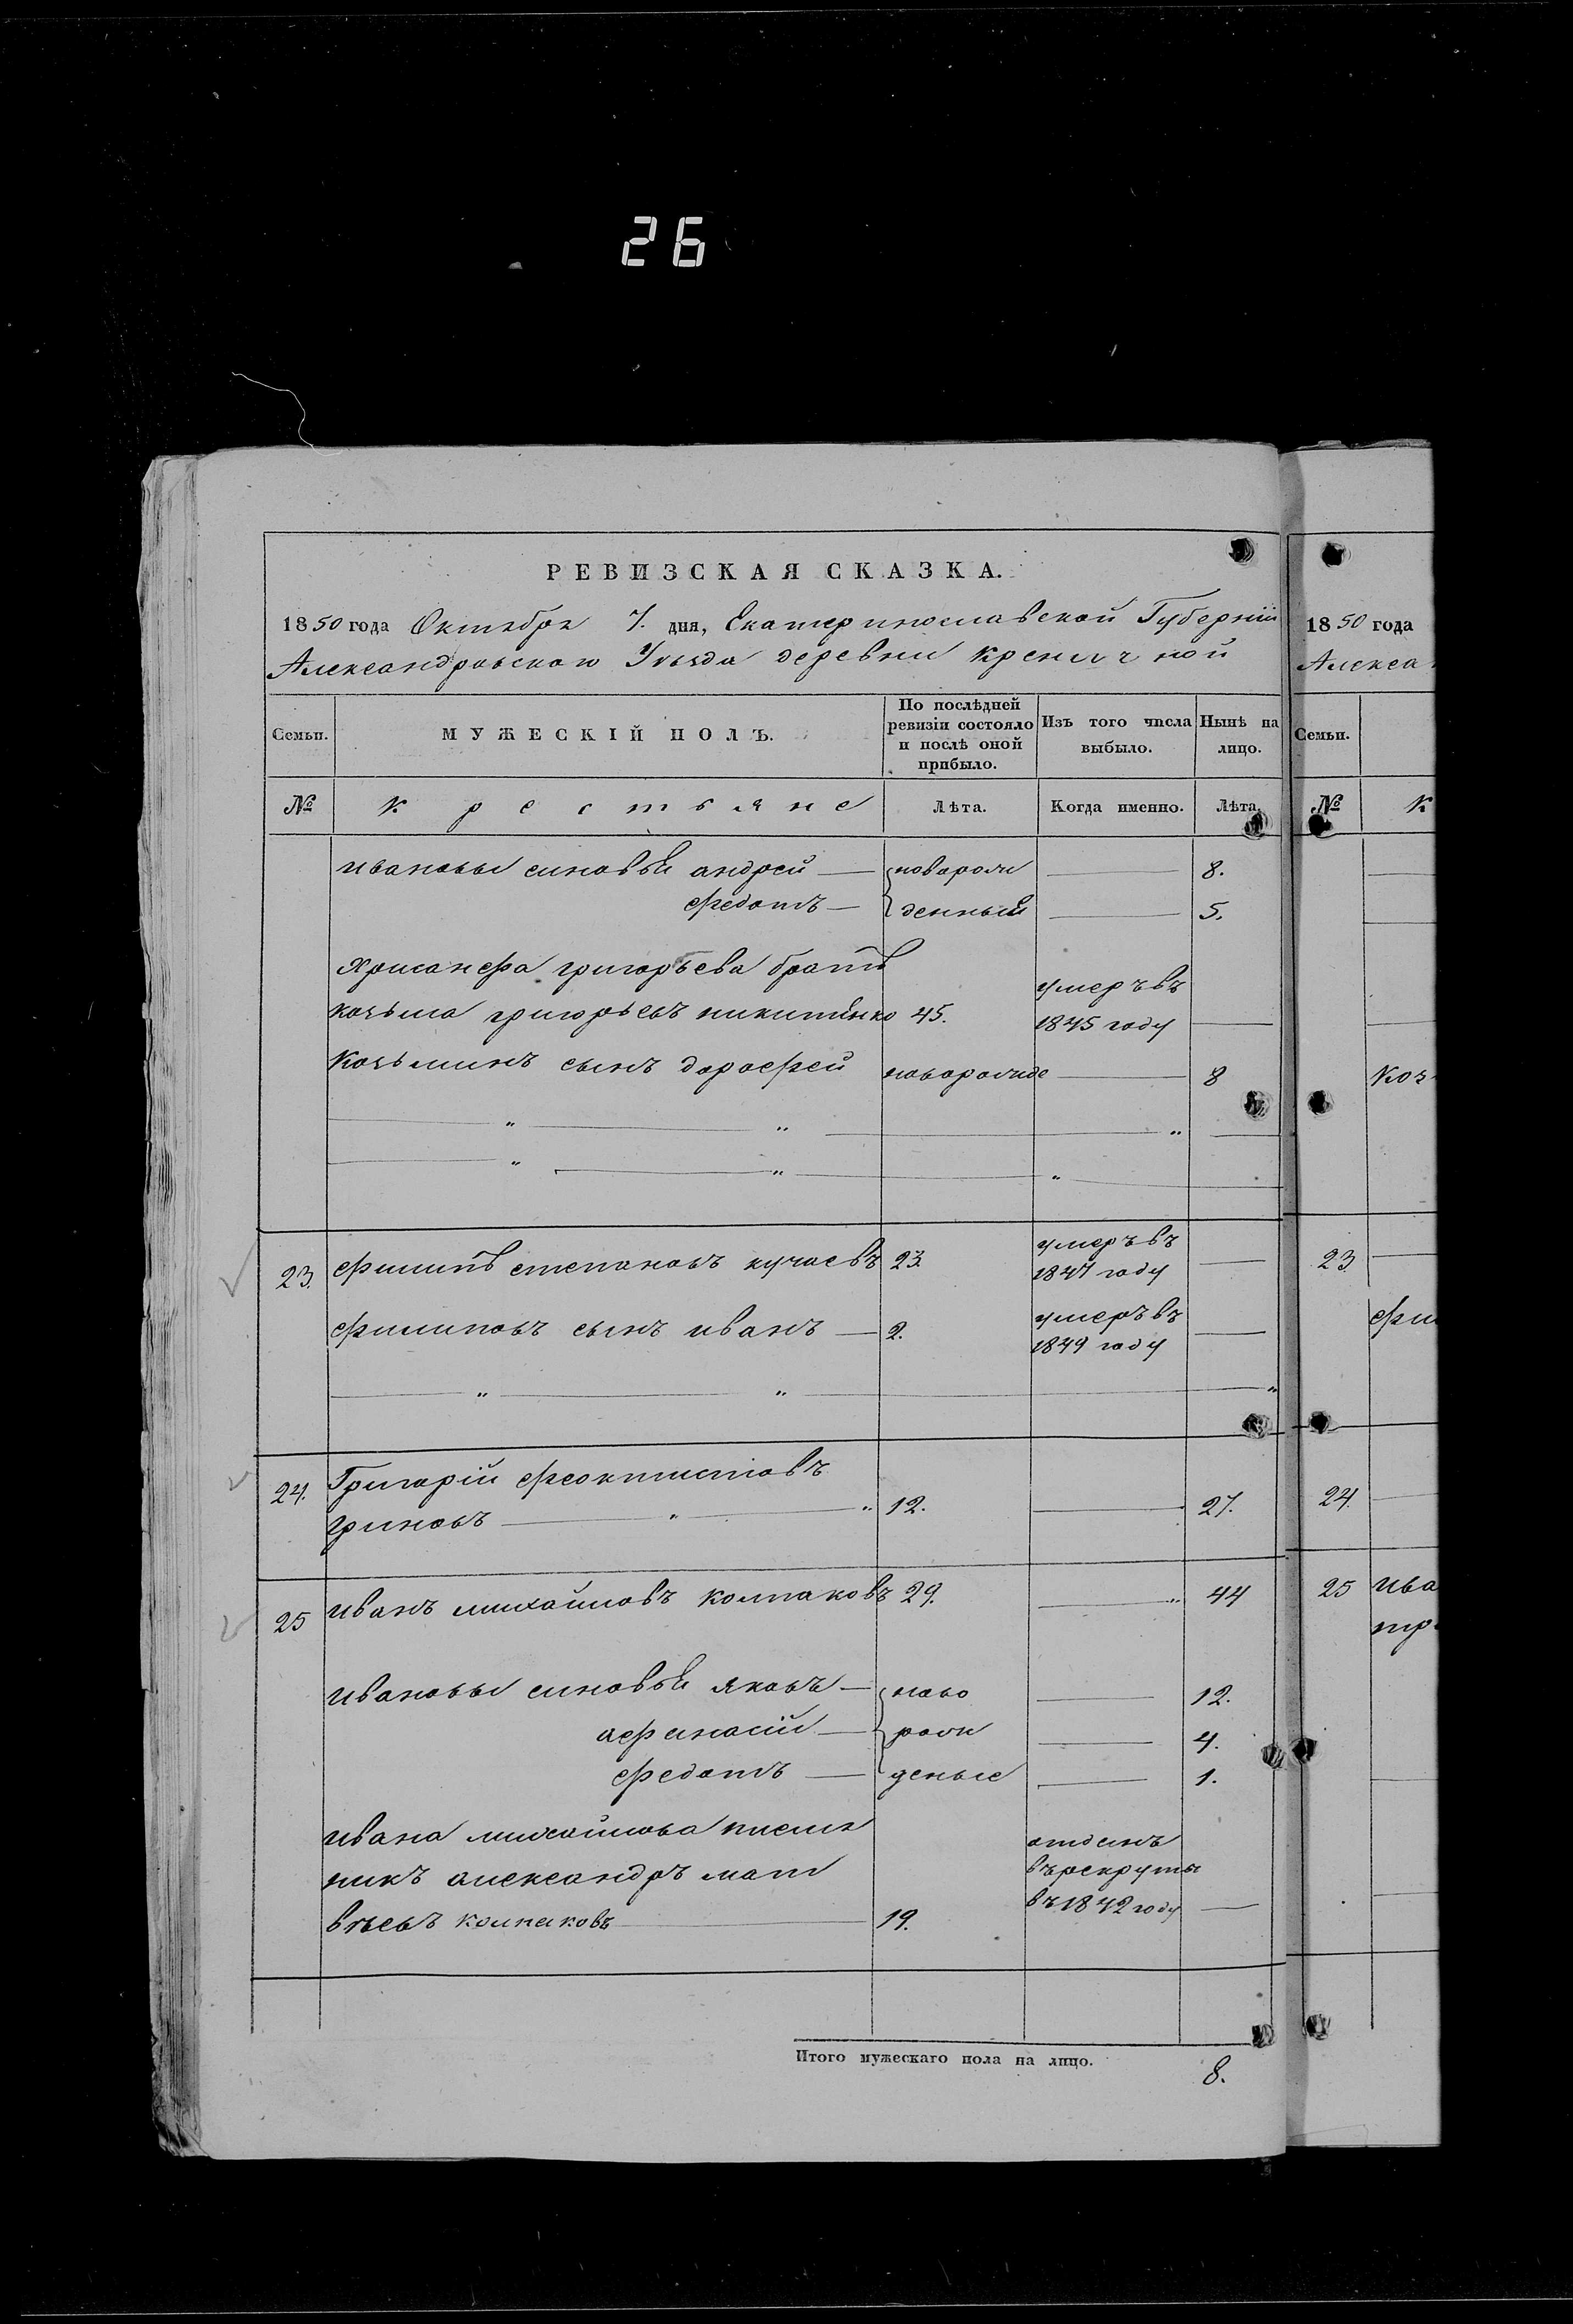 26
РЕВИЗСКАЯ СКАЗКА.
1850 года Октября 7. дня, Екатеринославской Губерніи
Александровскаго Уѣзда деревни Кременчиной
Семьи. МУЖЕСКІЙ ПОЛЪ. По послѣдней ревизіи состояло и послѣ оной прибыло. Изъ того числа выбыло. Нынѣ на лицо.
№ Крестьяне Лѣта. Когда именно. Лѣта.
ивановы синовьи андрей — новорож — 8.
федотъ — денныи — 5.
Хрисанфа григорьева братъ
козьма григорьевъ никитенко 45. умеръ въ 1845 году —
Козьминъ сынъ дорофей новорожде — 8
23. филипъ степановъ кучаевъ 23. умеръ въ 1847 году —
филиповъ сынъ иванъ — 2. умеръ въ 1849 году —
24. Григорій феоктистовъ
гриновъ — " — " 12. — 27.
25 иванъ михайловъ колпаковъ 29. — " 44
ивановы синовьи яковъ — ново — 12.
афанасій — рож — 4.
федотъ — деные — 1.
ивана михайлова племя
никъ александръ мат
вѣевъ колпаковъ — 19. отданъ въ рекруты въ 1842 году —
Итого мужескаго пола на лицо. 8.
1850 года
Алекса
Семьи.
№ К
Коз
23
фи
24
25 ива